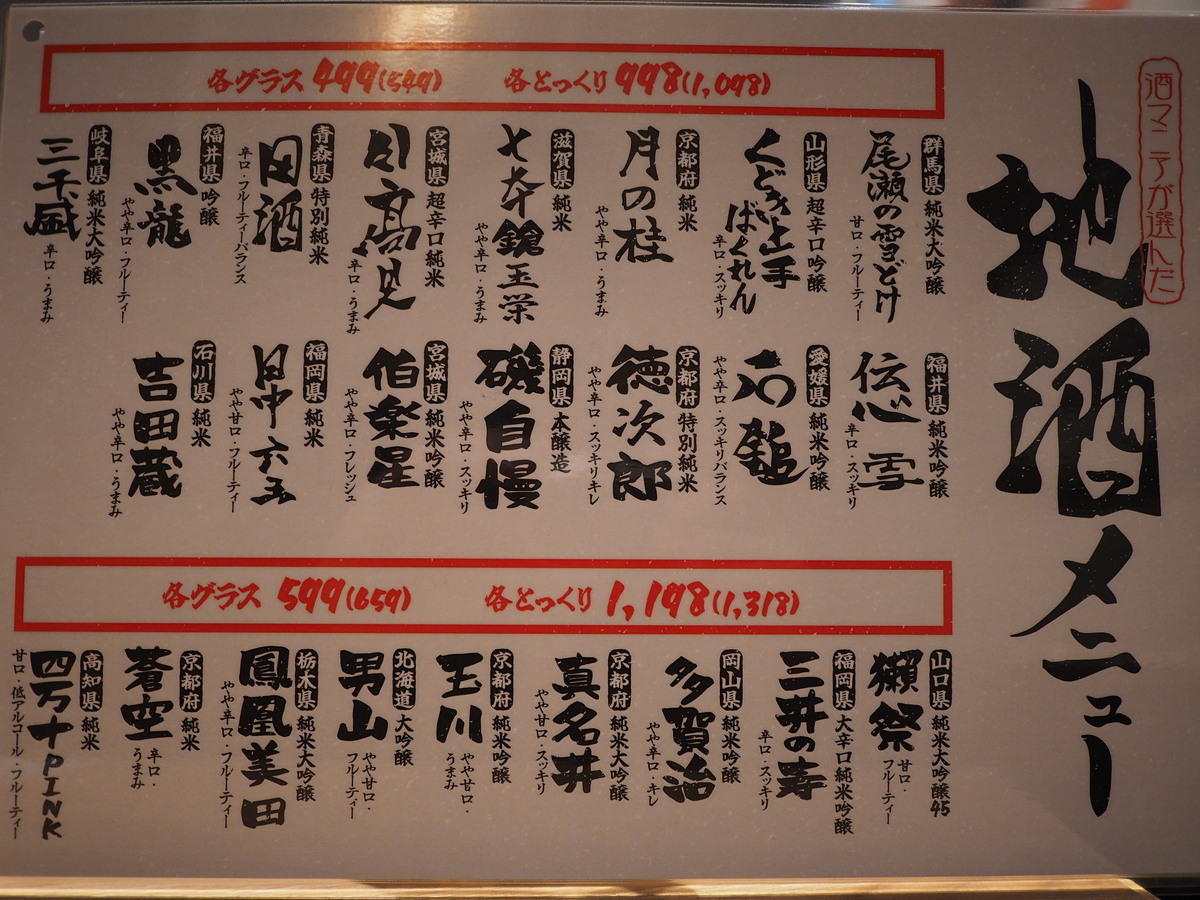 酒マニアが選んだ
地酒メニュー
各グラス 499(549) 各とっくり 998(1,098)
群馬県 純米大吟醸
尾瀬の雪どけ
甘口・フルーティー
山形県 超辛口吟醸
くどき上手
ばくれん
辛口・スッキリ
京都府 純米
月の桂
やや辛口・うまみ
滋賀県 純米
七本鎗玉栄
やや辛口・うまみ
宮城県 超辛口純米
日高見
辛口・うまみ
青森県 特別純米
田酒
辛口・フルーティーバランス
福井県 吟醸
黒龍
やや辛口・フルーティー
岐阜県 純米大吟醸
三千盛
辛口・うまみ
福井県 純米吟醸
伝心 雪
辛口・スッキリ
愛媛県 純米吟醸
石鎚
やや辛口・スッキリバランス
京都府 特別純米
徳次郎
やや辛口・スッキリキレ
静岡県 本醸造
磯自慢
やや辛口・スッキリ
宮城県 純米吟醸
伯楽星
やや辛口・フレッシュ
福岡県 純米
田中六五
やや甘口・フルーティー
石川県 純米
吉田蔵
やや辛口・うまみ
各グラス 599(659) 各とっくり 1,198(1,318)
山口県 純米大吟醸45
獺祭
甘口・フルーティー
福岡県 大辛口純米吟醸
三井の寿
辛口・スッキリ
岡山県 純米吟醸
多賀治
やや辛口・キレ
京都府 純米大吟醸
真名井
やや甘口・スッキリ
京都府 純米吟醸
玉川
やや甘口・うまみ
北海道 大吟醸
男山
やや甘口・フルーティー
栃木県 純米大吟醸
鳳凰美田
やや辛口・フルーティー
京都府 純米
蒼空
辛口・うまみ
高知県 純米
四万十PINK
甘口・低アルコール・フルーティー